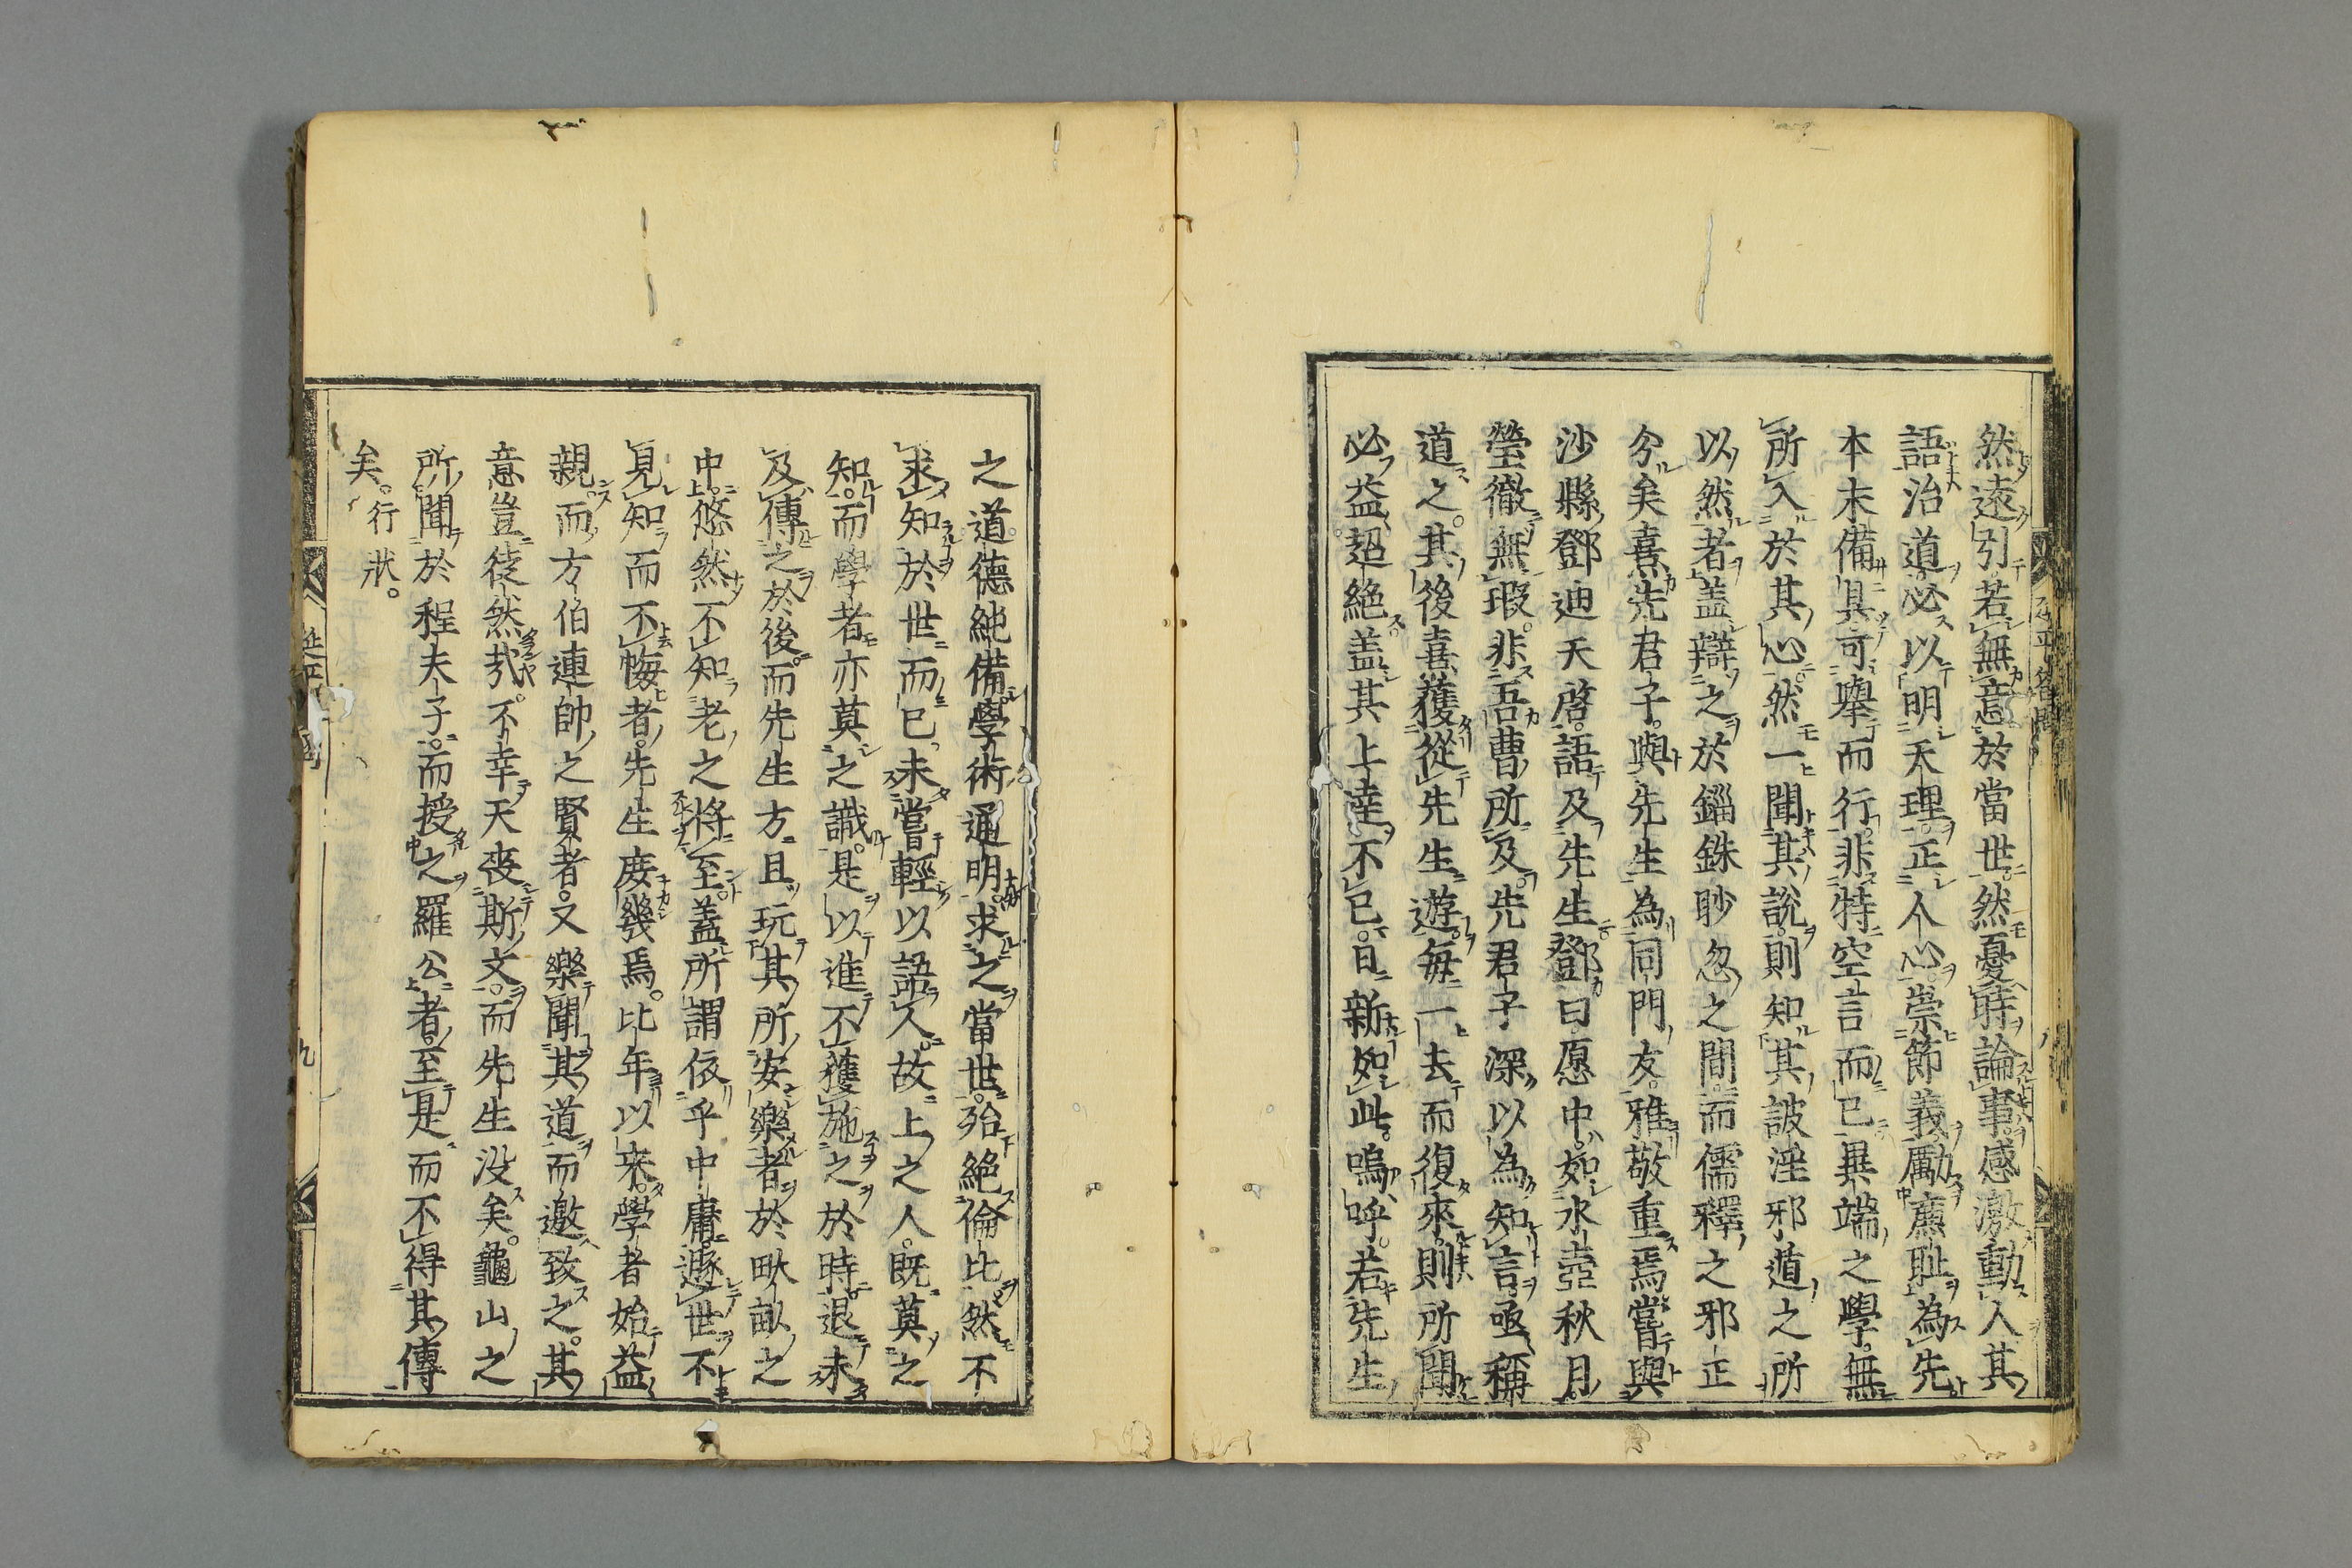 然遠引若無意於當世然憂時論事感激動人其
語治道必以明天理正人心崇節義勵廉耻為先
本末備具可舉而行非特空言而已異端之學無
所入於其心然一聞其說則知其詖淫邪遁之所
以然者盖辯之於錙銖眇忽之間而儒釋之邪正
分矣熹先君子與先生為同門友雅敬重焉嘗與
沙縣鄧迪天啓語及先生鄧曰愿中如氷壺秋月
瑩徹無瑕非吾曹所及先君子深以為知言亟稱
道之其後熹獲從先生遊每一去而復來則所聞
必益超絶盖其上達不已日新如此嗚呼若先生
之道德純備學術通明求之當世殆絶倫比然不
求知於世而已未嘗輕以語人故上之人既莫之
知而學者亦莫之識是以進不獲施之於時退未
及傳之於後而先生方且玩其所安樂者於畎畝之
中悠然不知老之將至蓋所謂依乎中庸遯世不
見知而不悔者先生庶幾焉比年以來學者始益
親而方伯連帥之賢者又樂聞其道而邀致之其
意豈徒然哉不幸天喪斯文而先生没矣龜山之
所聞於程夫子而授之羅公者至是而不得其傳
矣行狀
延平答問
九